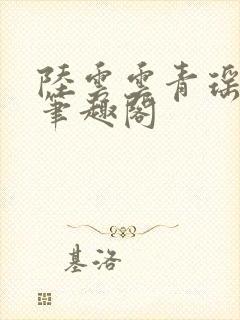 陸雲雲青瑶
筆趣閣
基洛